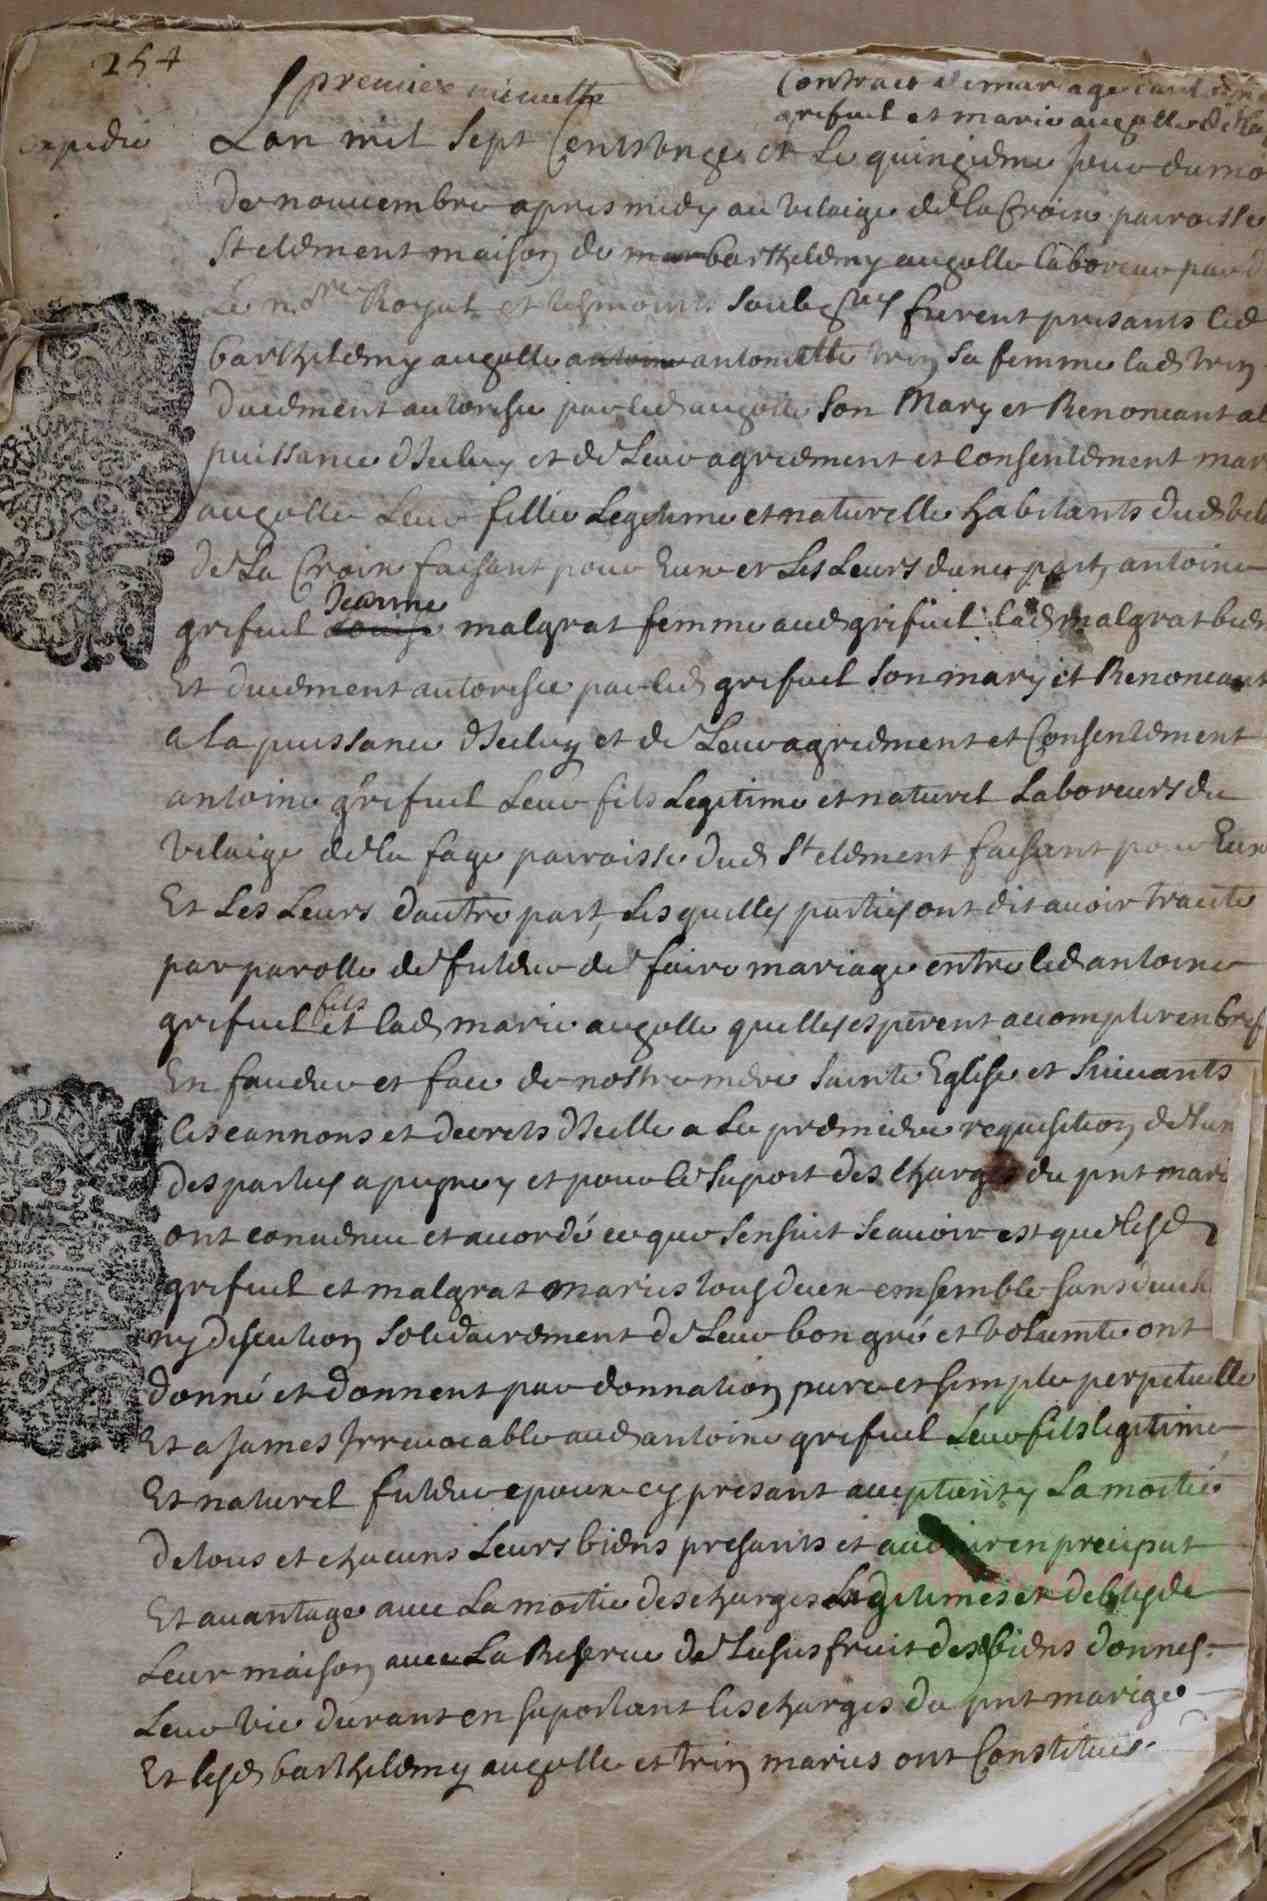 254
premiere minutte
Contract de mariage dant
grifuel et marie augolle de la
expedie
Lan mil sept Cents onze et le quinzieme jour du mo
de nouuembre apres midy au vilaige de la Croix parroisse
St clement maison de mar barthelemy augolle laboreur par d
le nre Royal et tesmoins soubsnes furent presants led
barthelemy augolle antoine antoinette trin sa femme lad trin
duement autorisee par led augolle son Mary et Renoncant a l
puissance dIceluy et de Leur agreement et Consentement mar
augolle Leur fillie Legitime et naturelle habitants dud vil
de La Croix faisant pour Eux et Les Leurs dune part, antoine
grifuel Louise Jeanne malgrat femme aud grifuel lad malgrat bien
Et duement autorisee par led grifuel son mary et Renoncant
a la puissance dIceluy et de Leur agreement et Consentement
antoine grifuel Leur fils Legitime et naturel Laboreurs du
vilaige de la fage parroisse dud St clement faisant pour Eux
Et Les Leurs dautre part, Lesquelles parties ont dit auoir traicte
par parolle de future de faire mariage entre led antoine
grifuel fils et lad marie augolle quelles esperent acomplir en bref
En faudur et face de nostre mere sainte Eglise et suiuants
les cannons et decrets dIcelle a la premiere requisition de lun
des parties a puyney et pour le suport des charges du pnt mari
ont conuenu et acordé ce que sensuit scauoir est que lesd
grifuel et malgrat maries tous deux ensemble sans
ny discution solidairement de Leur bon gré et volumte ont
donné et donnent par donnation pure et simple perpetuelle
Et a James Irreuocable aud antoine grifuel Leur fils legitime
Et naturel future epoux cy presant acceptant La moitié
de tous et chacuns Leurs biens presants et auenir en precipat
Et auantage auec La moitie des charges Legitimes et debtes de
Leur maison auec La Reserue de Lusufruit desd biens donnes
Leur vie durant en suportant les charges du pnt marige
Et lesd barthelemy augolle et trin maries ont Constitue